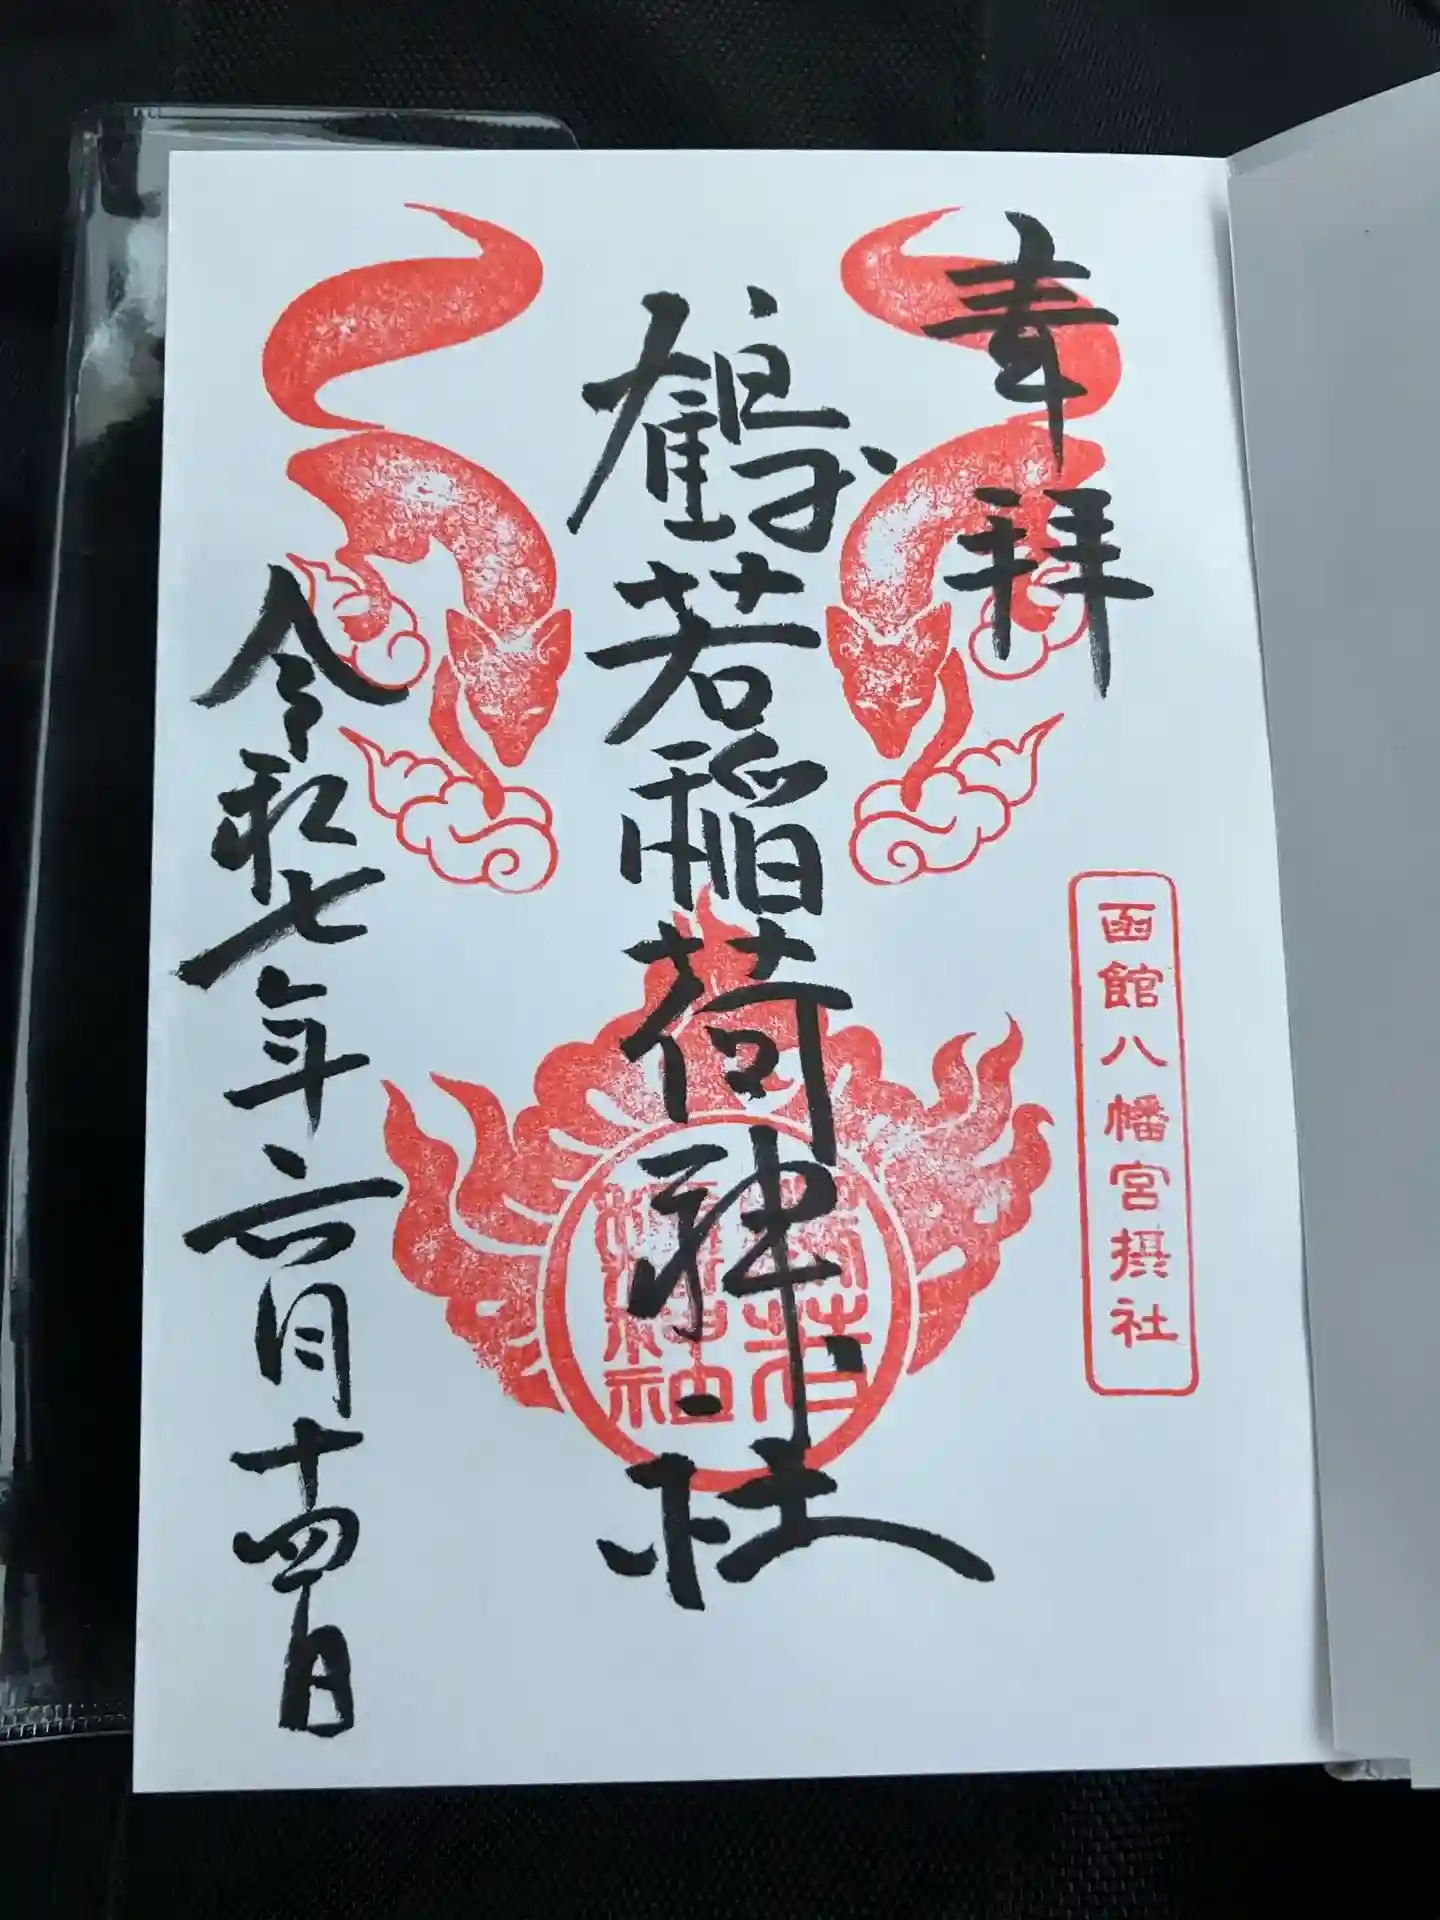 奉拝
函館八幡宮摂社
鶴若稲荷神社
令和七年六月十四日